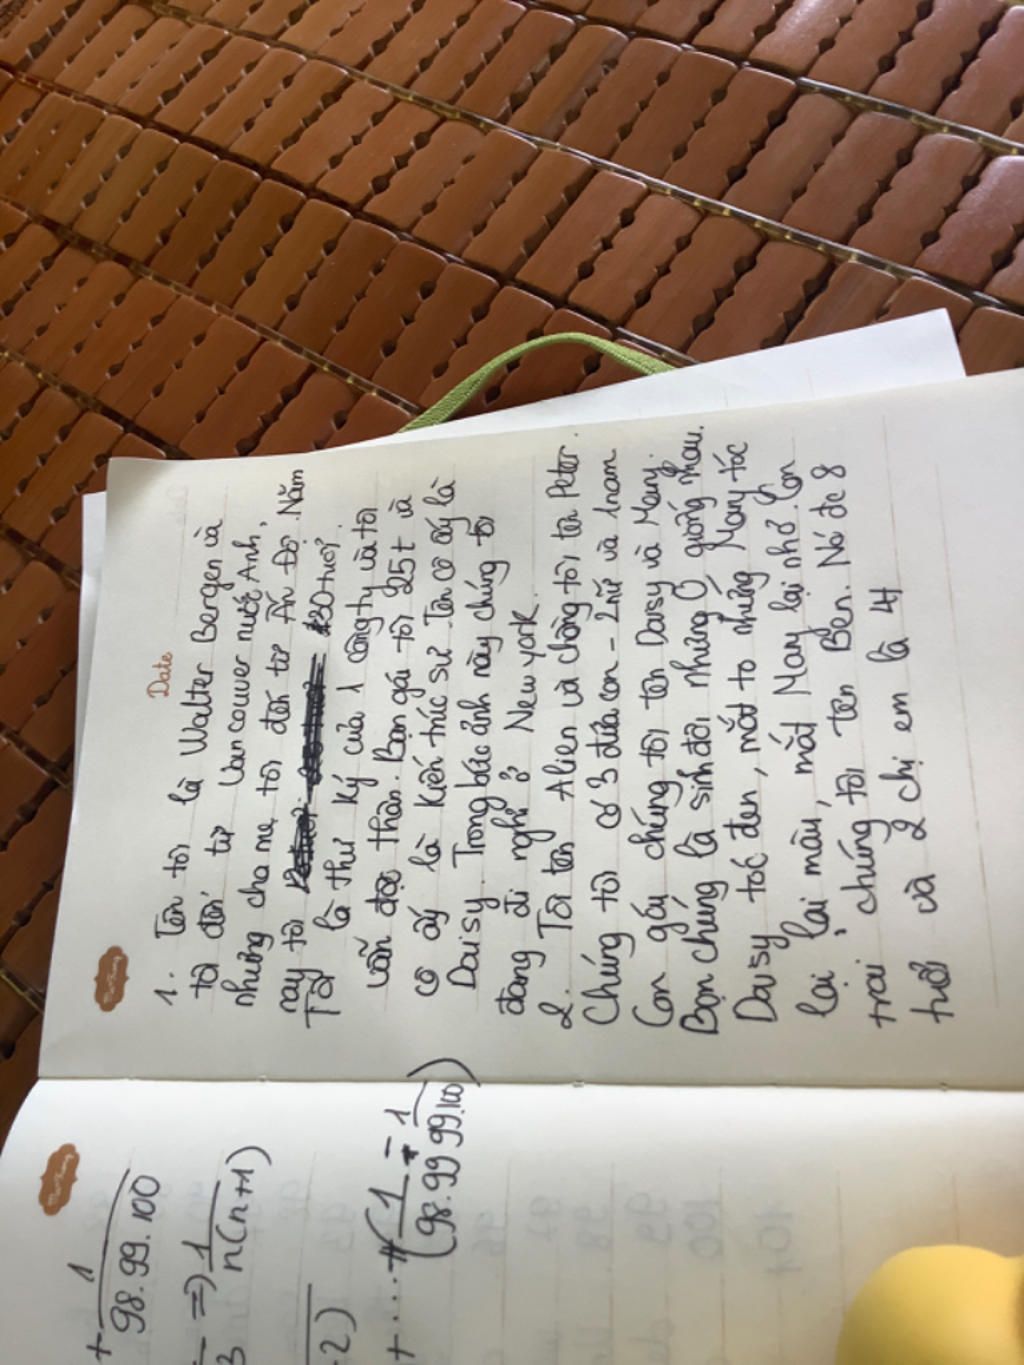 Date
1. Tên tôi là Walter Bergen và
tôi đến từ Vancouver nước Anh,
nhưng cha mẹ tôi đến từ Ấn Độ. Năm
nay tôi 30 tuổi.
Tôi là thư ký của 1 công ty và tôi
vẫn độc thân. Bạn gái tôi 25t và
cô ấy là kiến trúc sư. Tên cô ấy là
Daisy. Trong bức ảnh này chúng tôi
đang đi nghỉ ở New york.
2. Tôi tên Alien và chồng tôi tên Peter.
Chúng tôi có 3 đứa con - 2 nữ và 1 nam
Con gái chúng tôi tên Daisy và Mary.
Bọn chúng là sinh đôi nhưng 0 giống nhau.
Daisy tóc đen, mắt to nhưng Mary tóc
lại màu, mắt Mary lại nhỏ. Con
trai chúng tôi tên Ben. Nó đc 8
tuổi và 2 chị em là 4t
+ 1
98.99.100
=> 1
n(n+1)
+ ... + (1 - 1)
(98.99 99.100)